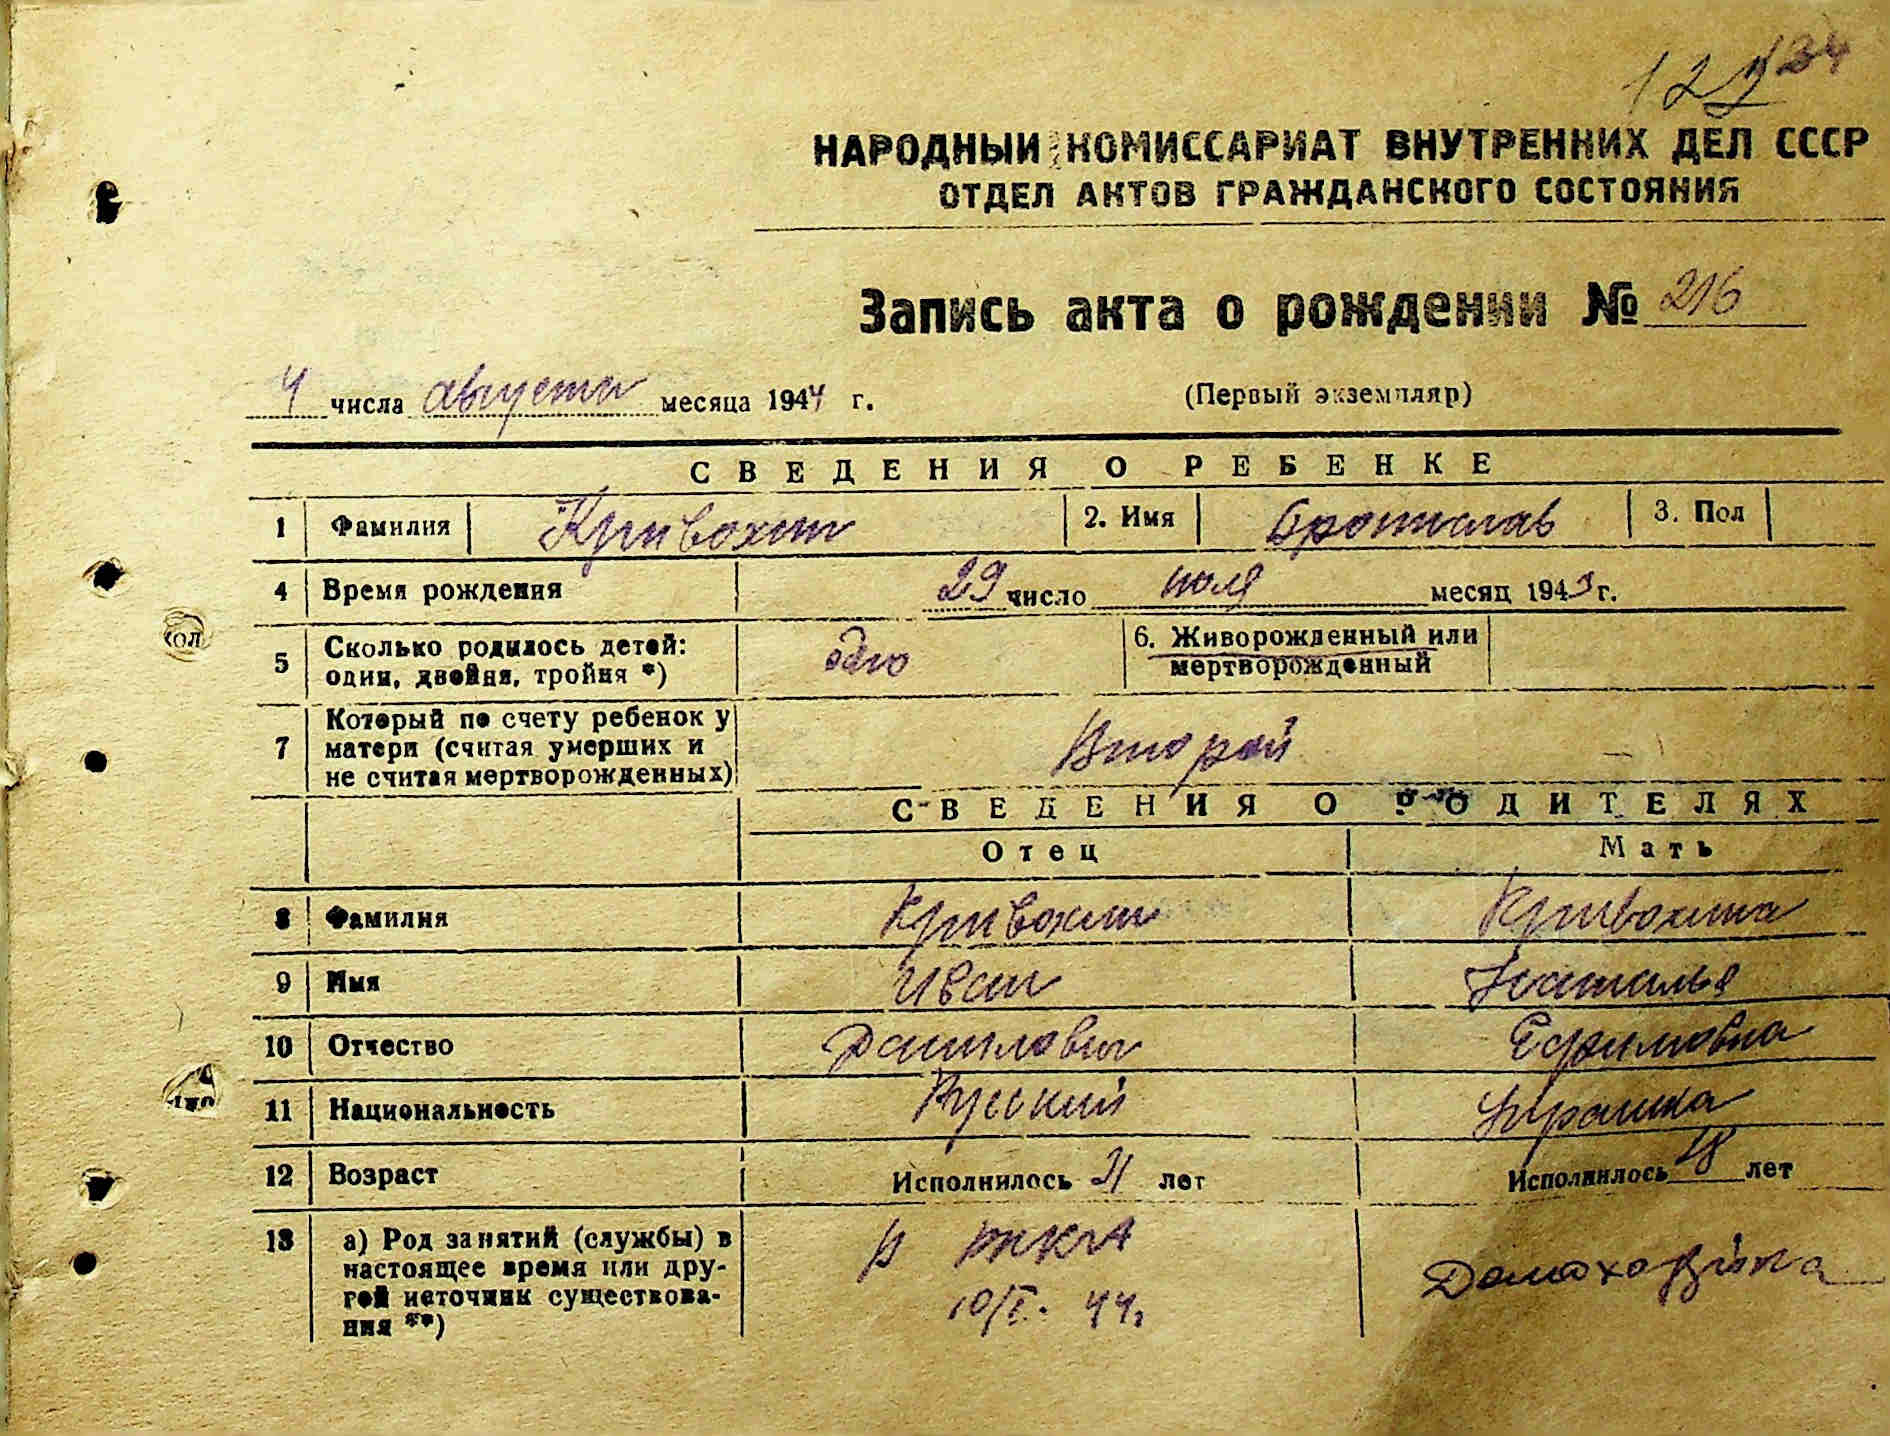 134
НАРОДНЫЙ КОМИССАРИАТ ВНУТРЕННИХ ДЕЛ СССР
ОТДЕЛ АКТОВ ГРАЖДАНСКОГО СОСТОЯНИЯ
Запись акта о рождении № 216
4 числа августа месяца 1944 г. (Первый экземпляр)
СВЕДЕНИЯ О РЕБЕНКЕ
1 Фамилия Кривохин 2. Имя Бронислав 3. Пол
4 Время рождения 29 число июля месяц 1943 г.
5 Сколько родилось детей: один, двойня, тройня *) одно 6. Живорожденный или мертворожденный
7 Который по счету ребенок у матери (считая умерших и не считая мертворожденных) Второй
СВЕДЕНИЯ О РОДИТЕЛЯХ
Отец Мать
8 Фамилия Кривохин Кривохина
9 Имя Иван Наталья
10 Отчество Данилович Ефимовна
11 Национальность Руський Украинка
12 Возраст Исполнилось 21 лет Исполнилось 18 лет
13 а) Род занятий (службы) в настоящее время или другой источник существования **) в РККА Домохазяйка
10/I. 44.